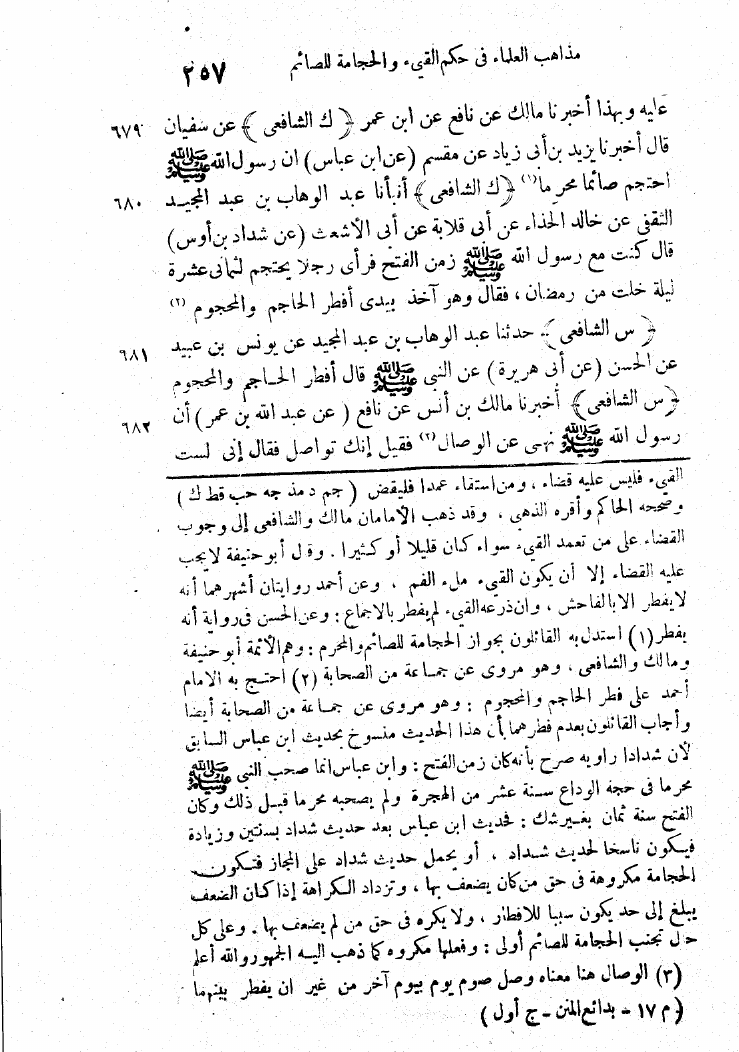 مذاهب العلماء فى حكم القيء والحجامة للصائم ٢٥٧
عليه وبهذا أخبرنا مالك عن نافع عن ابن عمر ﴿ ك الشافعى ﴾ عن سفيان ٦٧٩
قال أخبرنا يزيد بن أبى زياد عن مقسم (عن ابن عباس) ان رسول الله ﷺ
احتجم صائما محرما (١) ﴿ ك الشافعى ﴾ أنبأنا عبد الوهاب بن عبد المجيد ٦٨٠
الثقفى عن خالد الحذاء عن أبى قلابة عن أبى الأشعث (عن شداد بن أوس)
قال كنت مع رسول الله ﷺ زمن الفتح فرأى رجلا يحتجم لثمانى عشرة
ليلة خلت من رمضان ، فقال وهو آخذ بيدى أفطر الحاجم والمحجوم (٢)
﴿ س الشافعى ﴾ حدثنا عبد الوهاب بن عبد المجيد عن يونس بن عبيد ٦٨١
عن الحسن (عن أبى هريرة) عن النبى ﷺ قال أفطر الحاجم والمحجوم
﴿ س الشافعى ﴾ أخبرنا مالك بن أنس عن نافع ( عن عبد الله بن عمر ) أن ٦٨٢
رسول الله ﷺ نهى عن الوصال (٣) فقيل إنك تواصل فقال إنى لست
القيء فليس عليه قضاء ، ومن استقاء عمدا فليقض ( جم د مذ جه حب قط ك )
وصححه الحاكم وأقره الذهبى ، وقد ذهب الأمامان مالك والشافعى إلى وجوب
القضاء على من تعمد القيء سواء كان قليلا أو كثيرا . وقال أبو حنيفة لا يجب
عليه القضاء إلا أن يكون القيء ملء الفم ، وعن أحمد روايتان أشهرهما أنه
لا يفطر الا بالفاحش ، وان ذرعه القيء لم يفطر بالاجماع : وعن الحسن فى رواية أنه
يفطر (١) استدل به القائلون بجواز الحجامة للصائم والمحرم : وهم الأئمة أبو حنيفة
ومالك والشافعى ، وهو مروى عن جماعة من الصحابة (٢) احتج به الامام
أحمد على فطر الحاجم والمحجوم : وهو مروى عن جماعة من الصحابة أيضا
وأجاب القائلون بعدم فطرهما بأن هذا الحديث منسوخ بحديث ابن عباس السابق
لأن شدادا راويه صرح بأنه كان زمن الفتح : وابن عباس انما صحب النبى ﷺ
محرما فى حجة الوداع سنة عشر من الهجرة ولم يصحبه محرما قبل ذلك وكان
الفتح سنة ثمان بغير شك : فحديث ابن عباس بعد حديث شداد بسنتين وزيادة
فيكون ناسخا لحديث شداد ، أو يحمل حديث شداد على المجاز فتكون
الحجامة مكروهة فى حق من كان يضعف بها ، وتزداد الكراهة إذا كان الضعف
يبلغ إلى حد يكون سببا للافطار ، ولا يكره فى حق من لم يضعف بها . وعلى كل
حال تجنب الحجامة للصائم أولى : وفعلها مكروه كما ذهب اليه الجمهور والله أعلم
(٣) الوصال هنا معناه وصل صوم يوم بيوم آخر من غير ان يفطر بينهما
﴿ م ١٧ - بدائع المنن - ج أول )